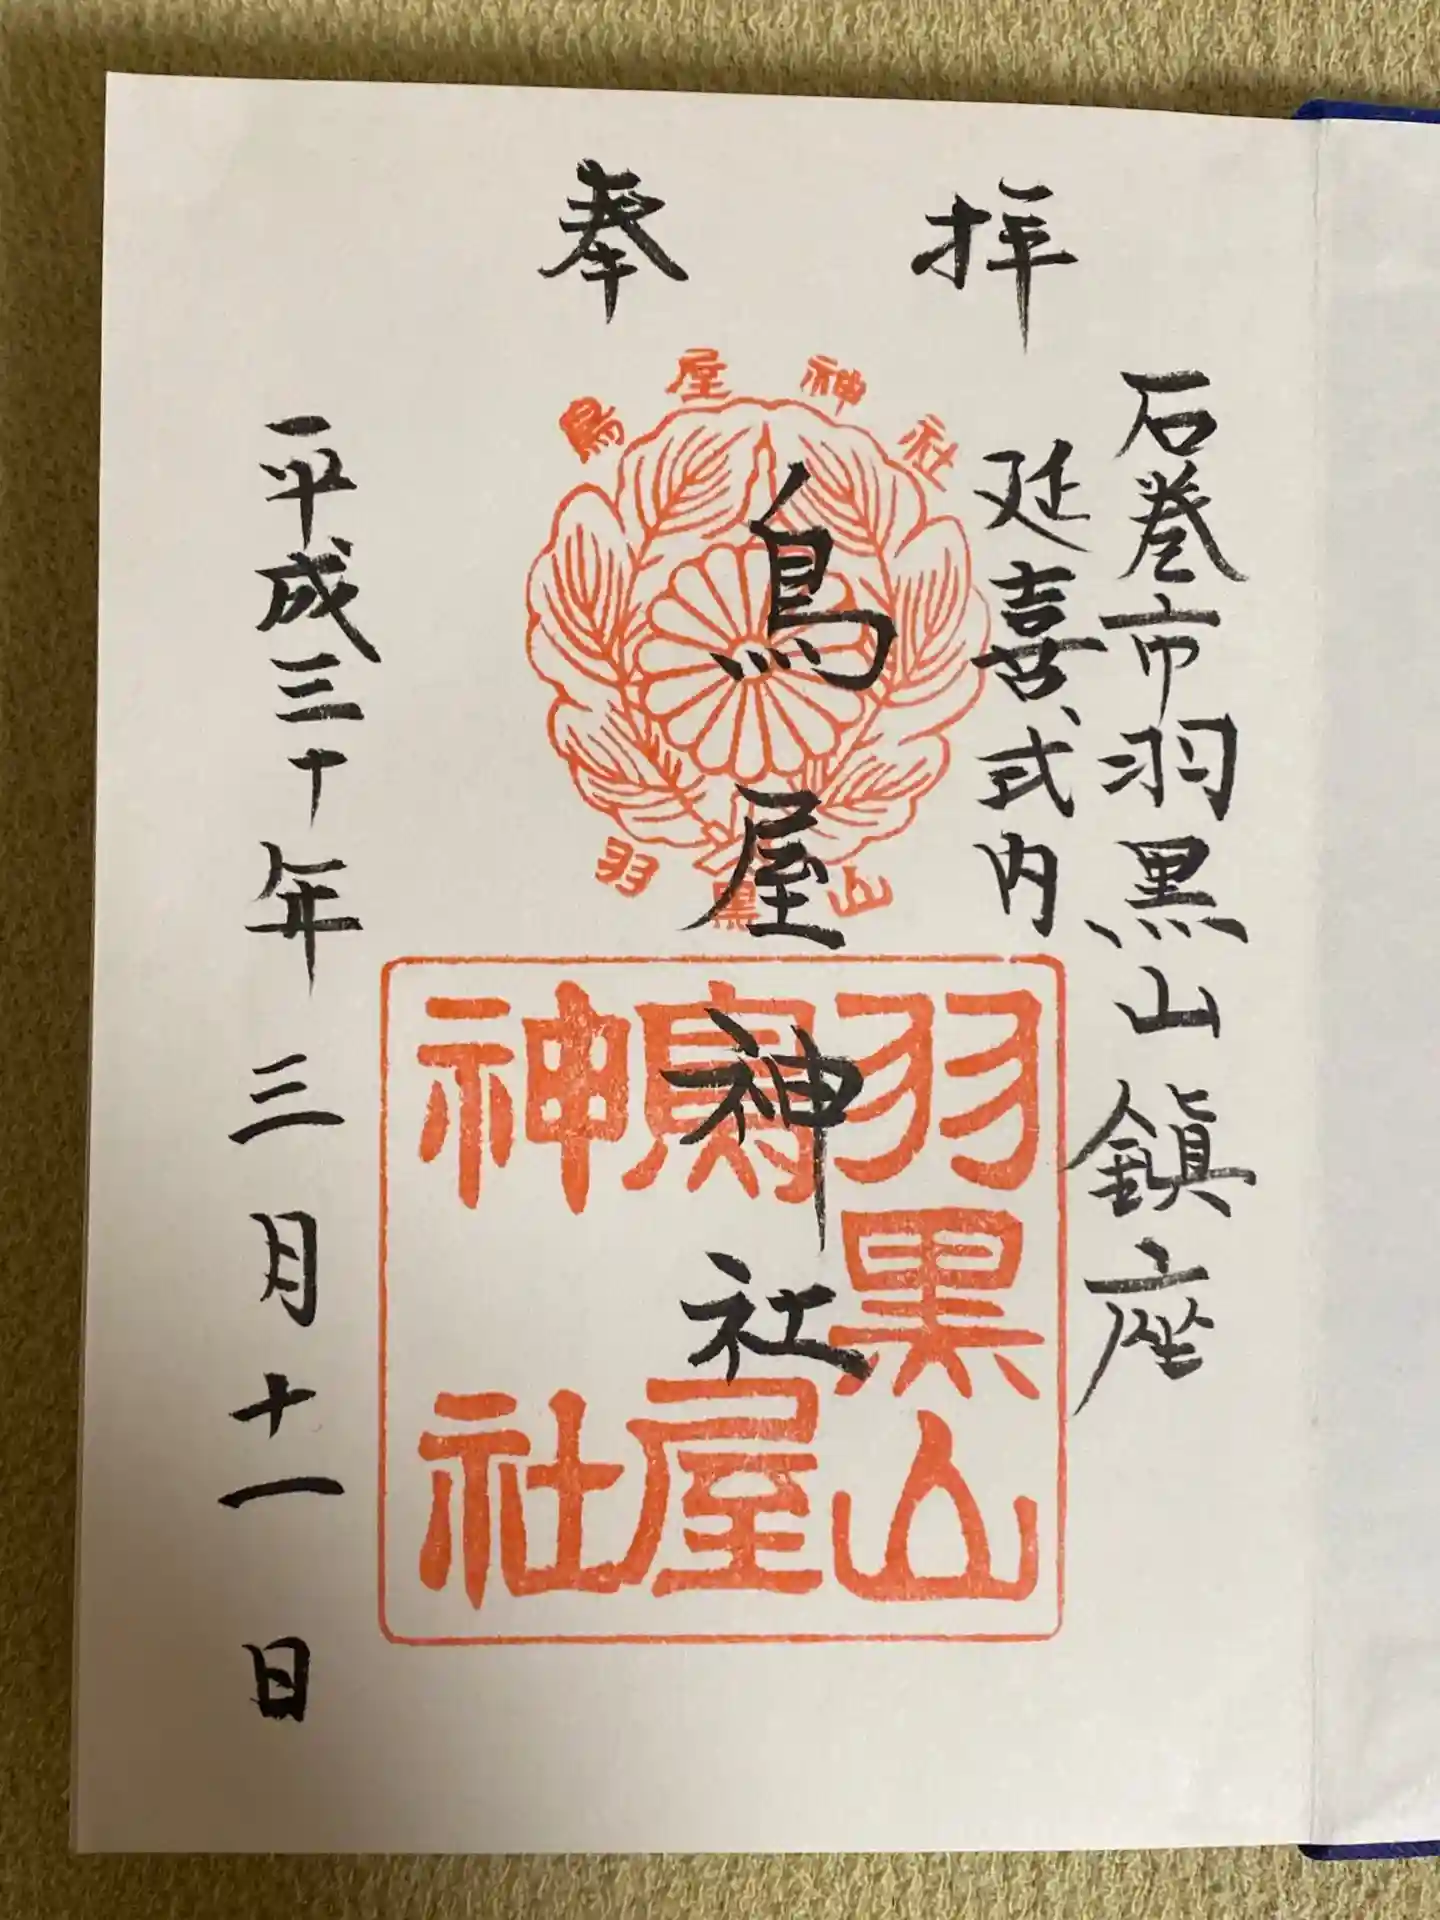 拝
奉
石巻市羽黒山鎮座
延喜式内
鳥屋神社
平成三十年三月十一日
鳥屋神社
羽黒山
羽黒山
鳥屋
神社